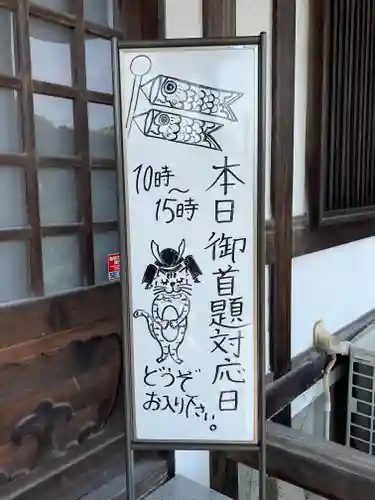 本日御首題対応日
10時〜
15時
どうぞ
お入り下さい。